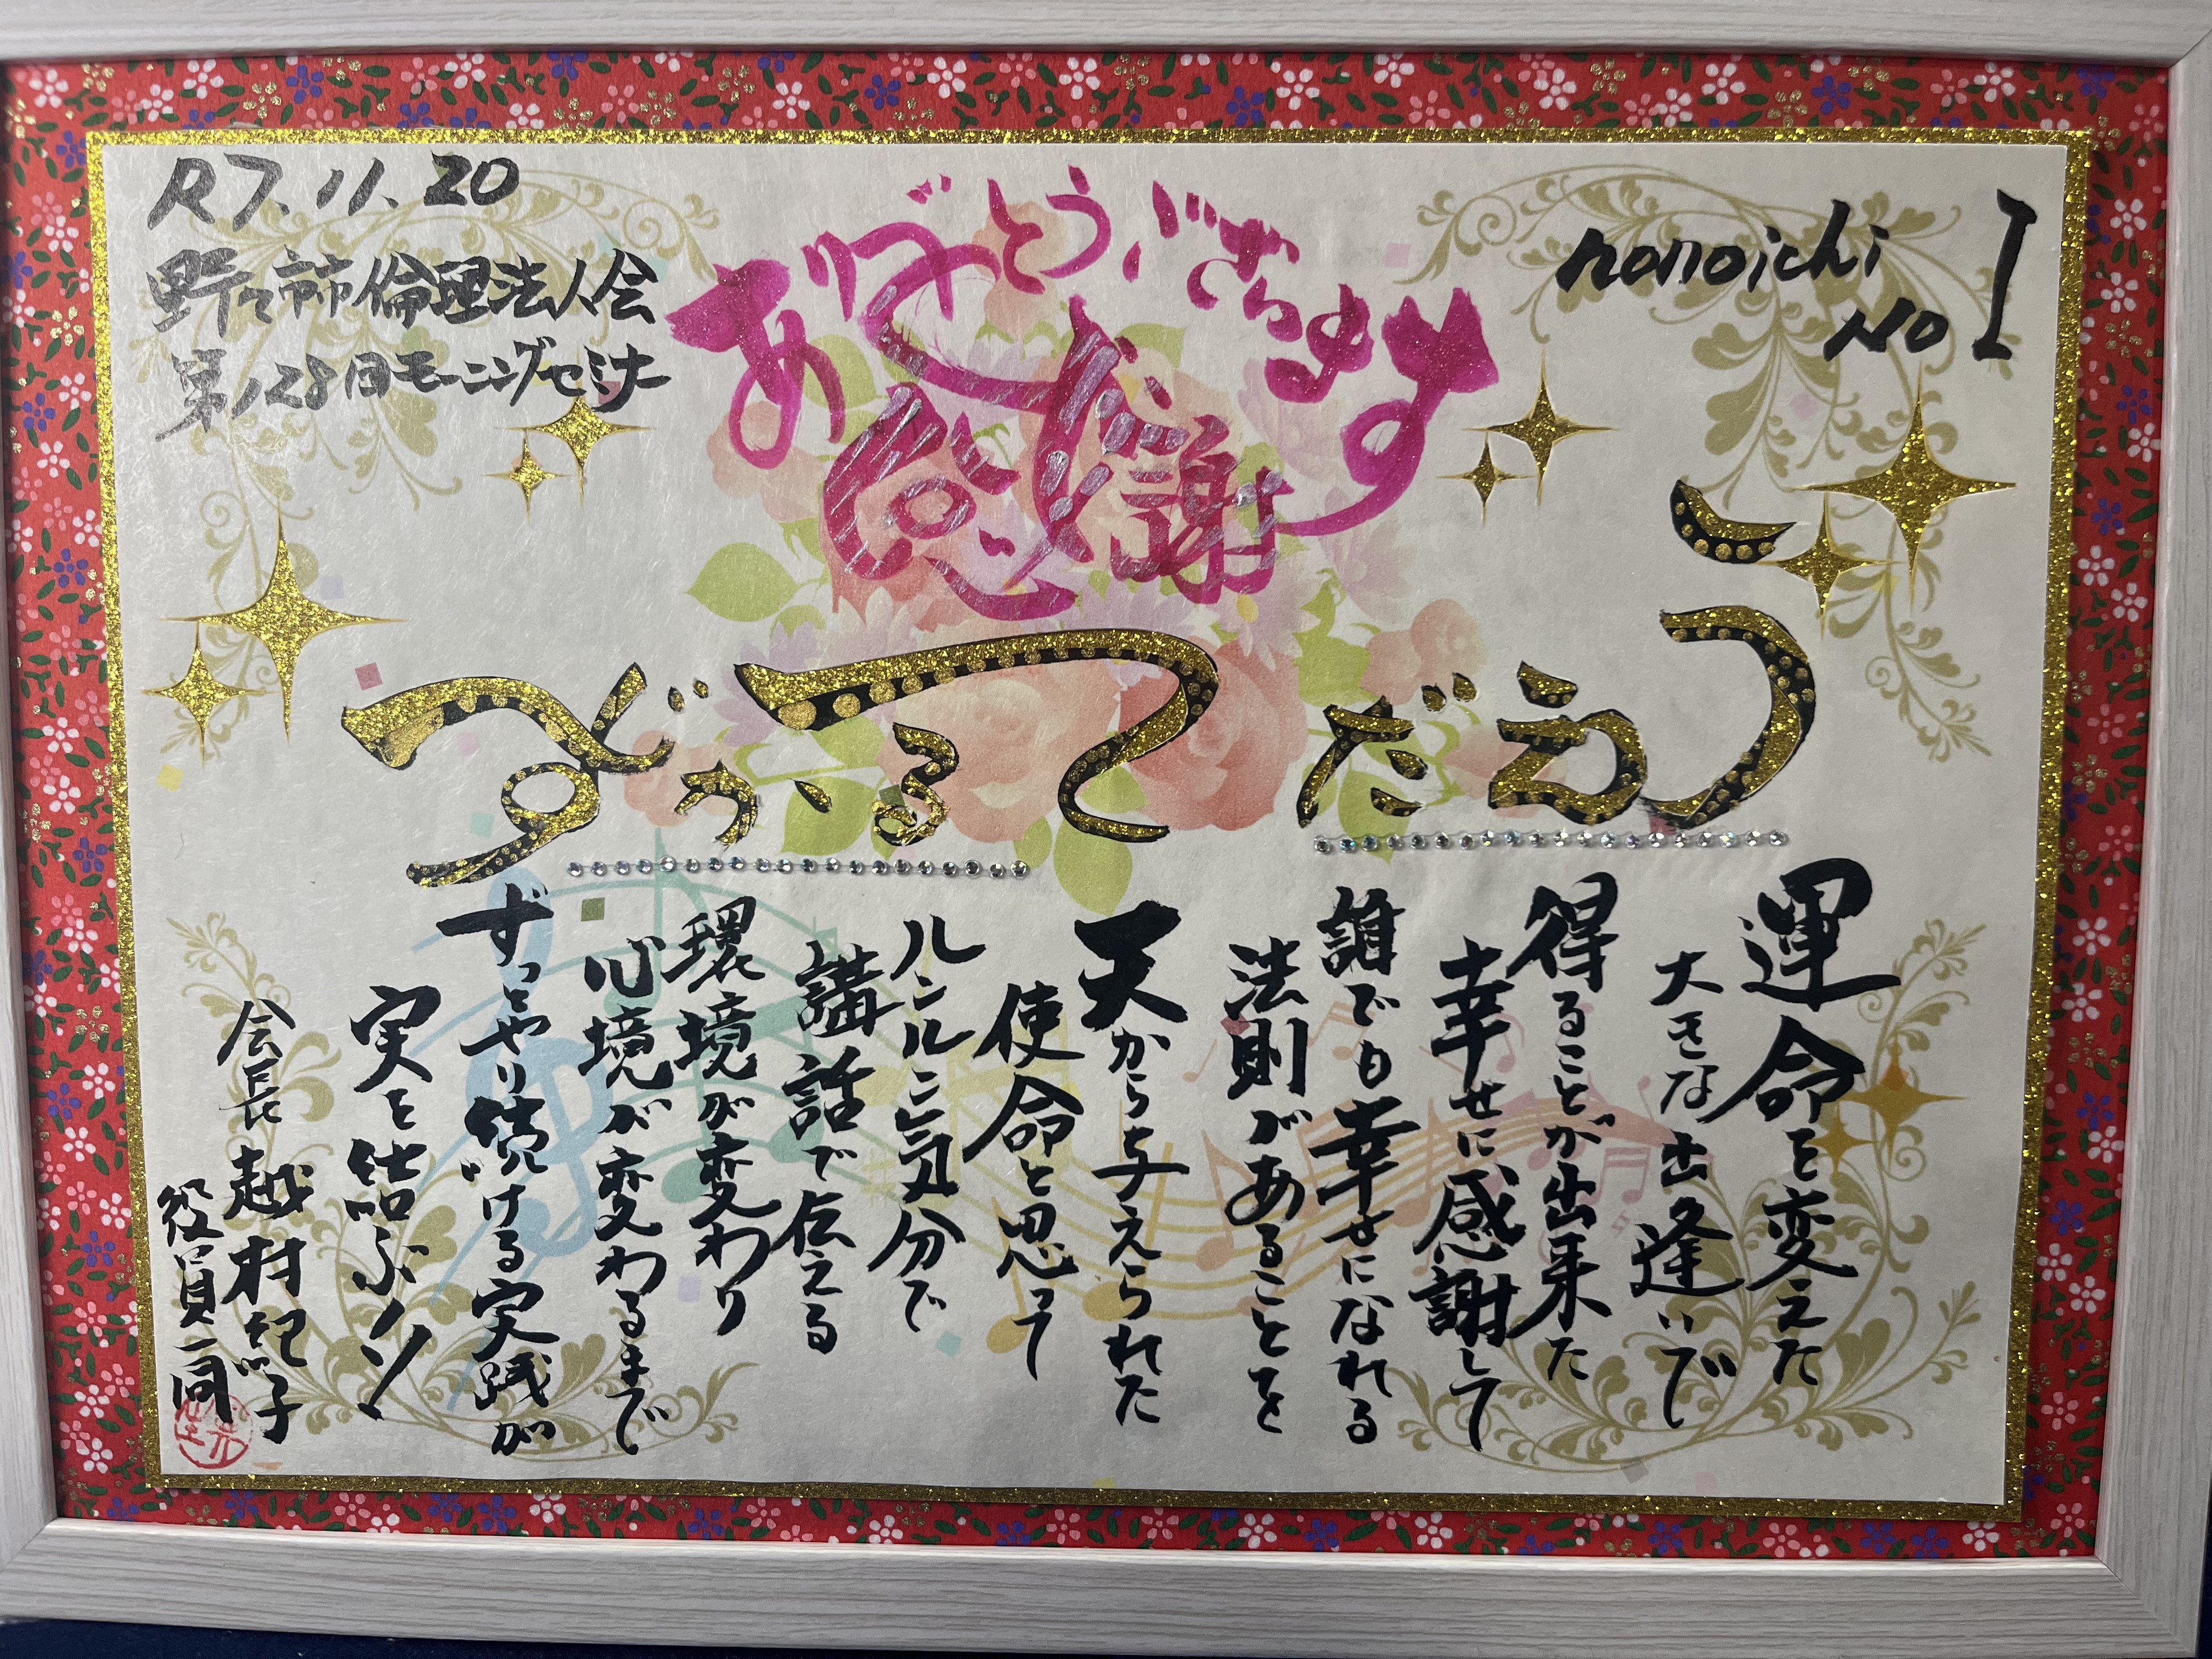 R7.11.20
野々市市倫理法人会
第128回モーニングセミナー
ありがとうございます
感謝
nonoichi
No 1
うえだ
てるかず
運命を変えた
大きな出逢いで
得ることが出来た
幸せに感謝して
誰でも幸せになれる
法則があることを
天から与えられた
使命と思って
ルンルン気分で
講話で伝える
環境が変わり
心境が変わるまで
ずっとやり続ける実践が
実を結ぶ
会長 越村
役員一同